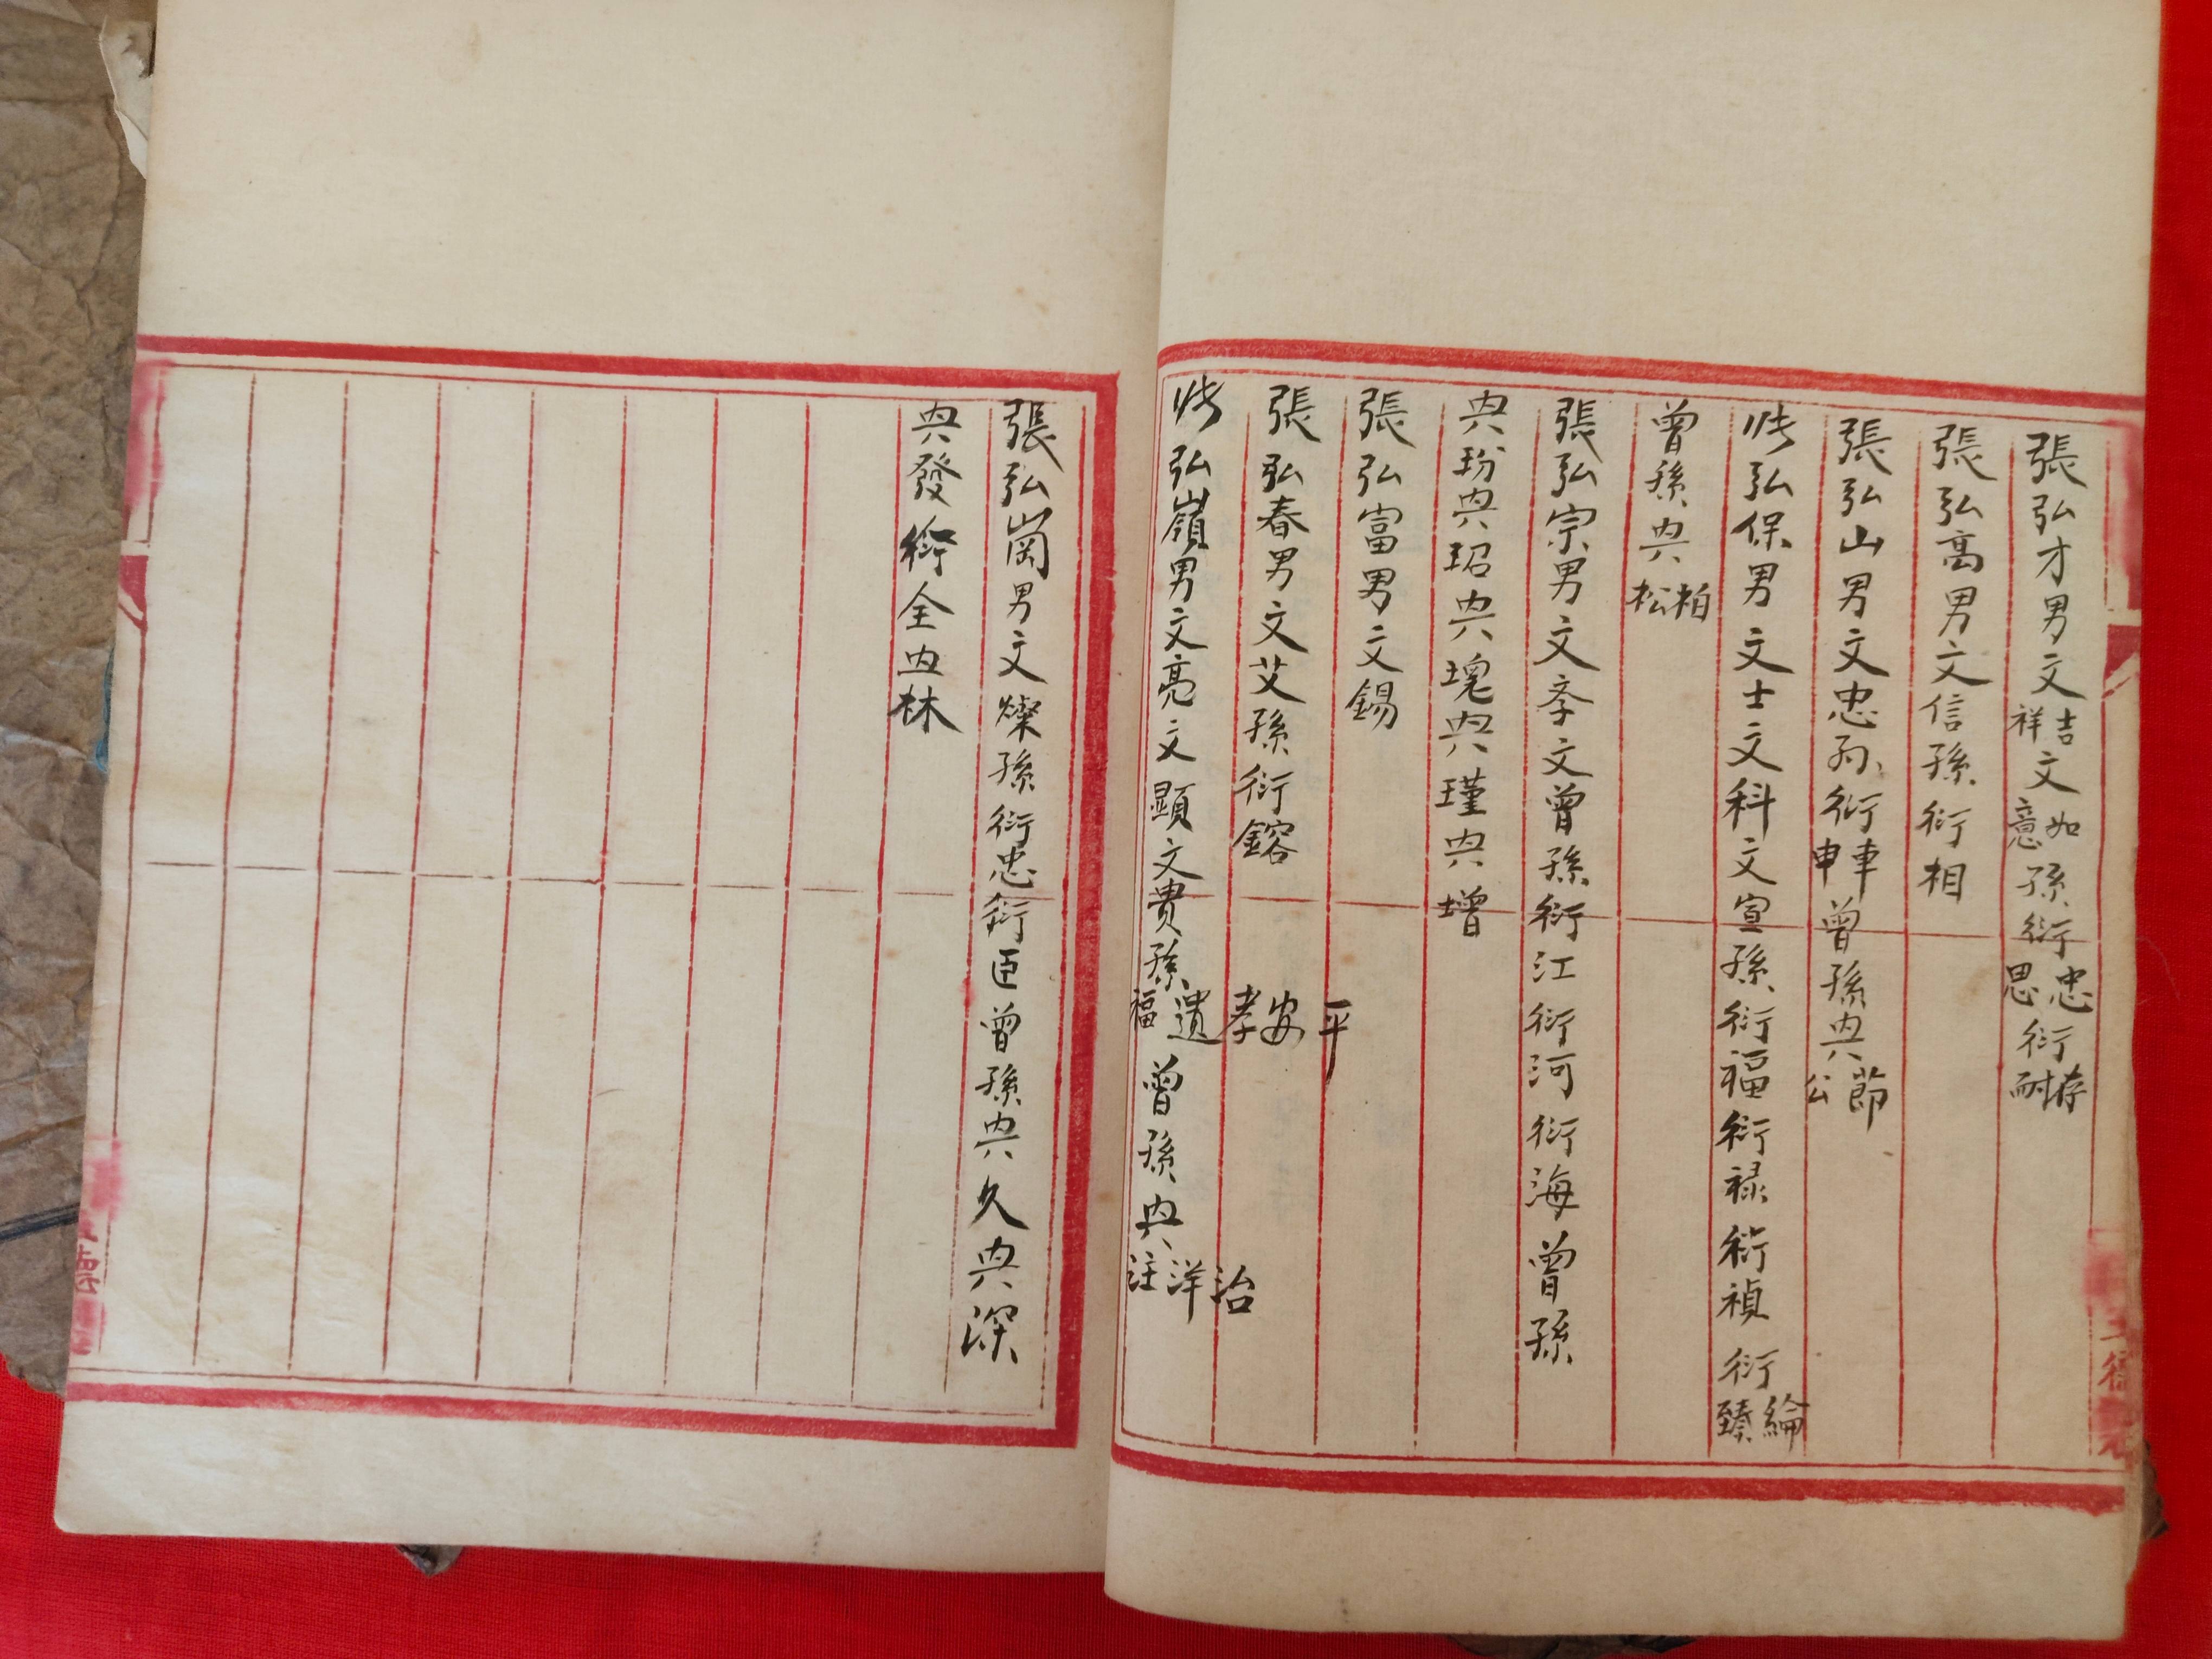 張弘才男文吉祥文如意孫衍忠思衍存耐
張弘高男文信孫衍相
張弘山男文忠孙衍車申曾孫典節公
张弘保男文士文科文宣孫衍福衍禄衍禎衍綸臻
曾孫典柏松
張弘宗男文孝文曾孫衍江衍河衍海曾孫
典玢典玿典瑰典瑾典增
張弘富男文錫
張弘春男文艾孫衍鎔
张弘嶺男文亮文顯文貴孫平安孝遺福曾孫典治洋注
張弘崗男文燦孫衍忠衍臣曾孫典久典深
典發衍全典林